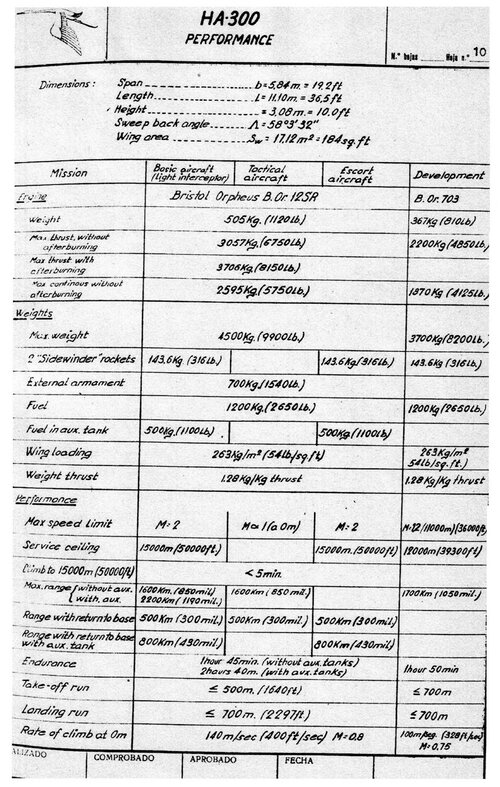 HA-300
PERFORMANCE
N.º hojas Hoja n.º 10
Dimensions: Span b=5,84m.=19.2ft
Length L=11.10m.=36,5ft
Height =3,08m.=10.0ft
Sweep back angle Λ=58°3'32"
Wing area Sw=17,12m²=184sq.ft
Mission Basic aircraft (Light interceptor) Tactical aircraft Escort aircraft Development
Engine Bristol Orpheus B.Or 12SR B.Or 703
Weight 505Kg.(1120Lb) 367Kg(810Lb)
Max thrust, without afterburning 3057Kg.(6750Lb) 2200Kg(4850Lb)
Max thrust with afterburning 3706Kg(8150Lb)
Max continous without afterburning 2595Kg.(5750Lb) 1870Kg(4125Lb)
Weights
Max. weight 4500Kg.(9900Lb.) 3700Kg(8200Lb.)
2 "Sidewinder" rockets 143.6Kg(316Lb.) 143.6Kg(316Lb.) 143,6Kg(316Lb.)
External armament 700Kg(1540Lb.)
Fuel 1200Kg.(2650Lb.) 1200Kg(2650Lb.)
Fuel in aux. tank 500Kg.(1100Lb) 500Kg(1100Lb)
Wing loading 263Kg/m² (54Lb/sq.ft) 263Kg/m² 54Lb/sq.ft.)
Weight thrust 1.28Kg/Kg thrust 1.28 Kg/Kg thrust
Performance
Max speed limit M=2 M∝1(a 0m) M=2 (11000m)(36000ft)
Service ceiling 15000m(50000ft.) 15000m.(50000ft.) 12000m(39300ft)
Climb to 15000m(50000ft) <5min.
Max. range without aux. 1600Km.(850mil.) 1600Km(850mil.) 1700Km(1050mil.)
with. aux. 2200Km(1190mil.)
Range with return to base 500Km(300mil.) 500Km(300mil.) 500Km(300mil.)
Range with return to base with aux. tank 800Km(430mil.) 800Km(430mil.)
Endurance 1hour 45min.(without aux.tanks) 2hours 40m.(with aux.tanks) 1hour 50min
Take-off run ≤ 500m.(1640ft) ≤ 700m
Landing run ≤ 700m.(2297ft) ≤700m
Rate of climb at 0m 140m/sec (400ft/sec) M=0.8 100m/seg.(328ft/sec) M=0.75
COMPROBADO APROBADO FECHA